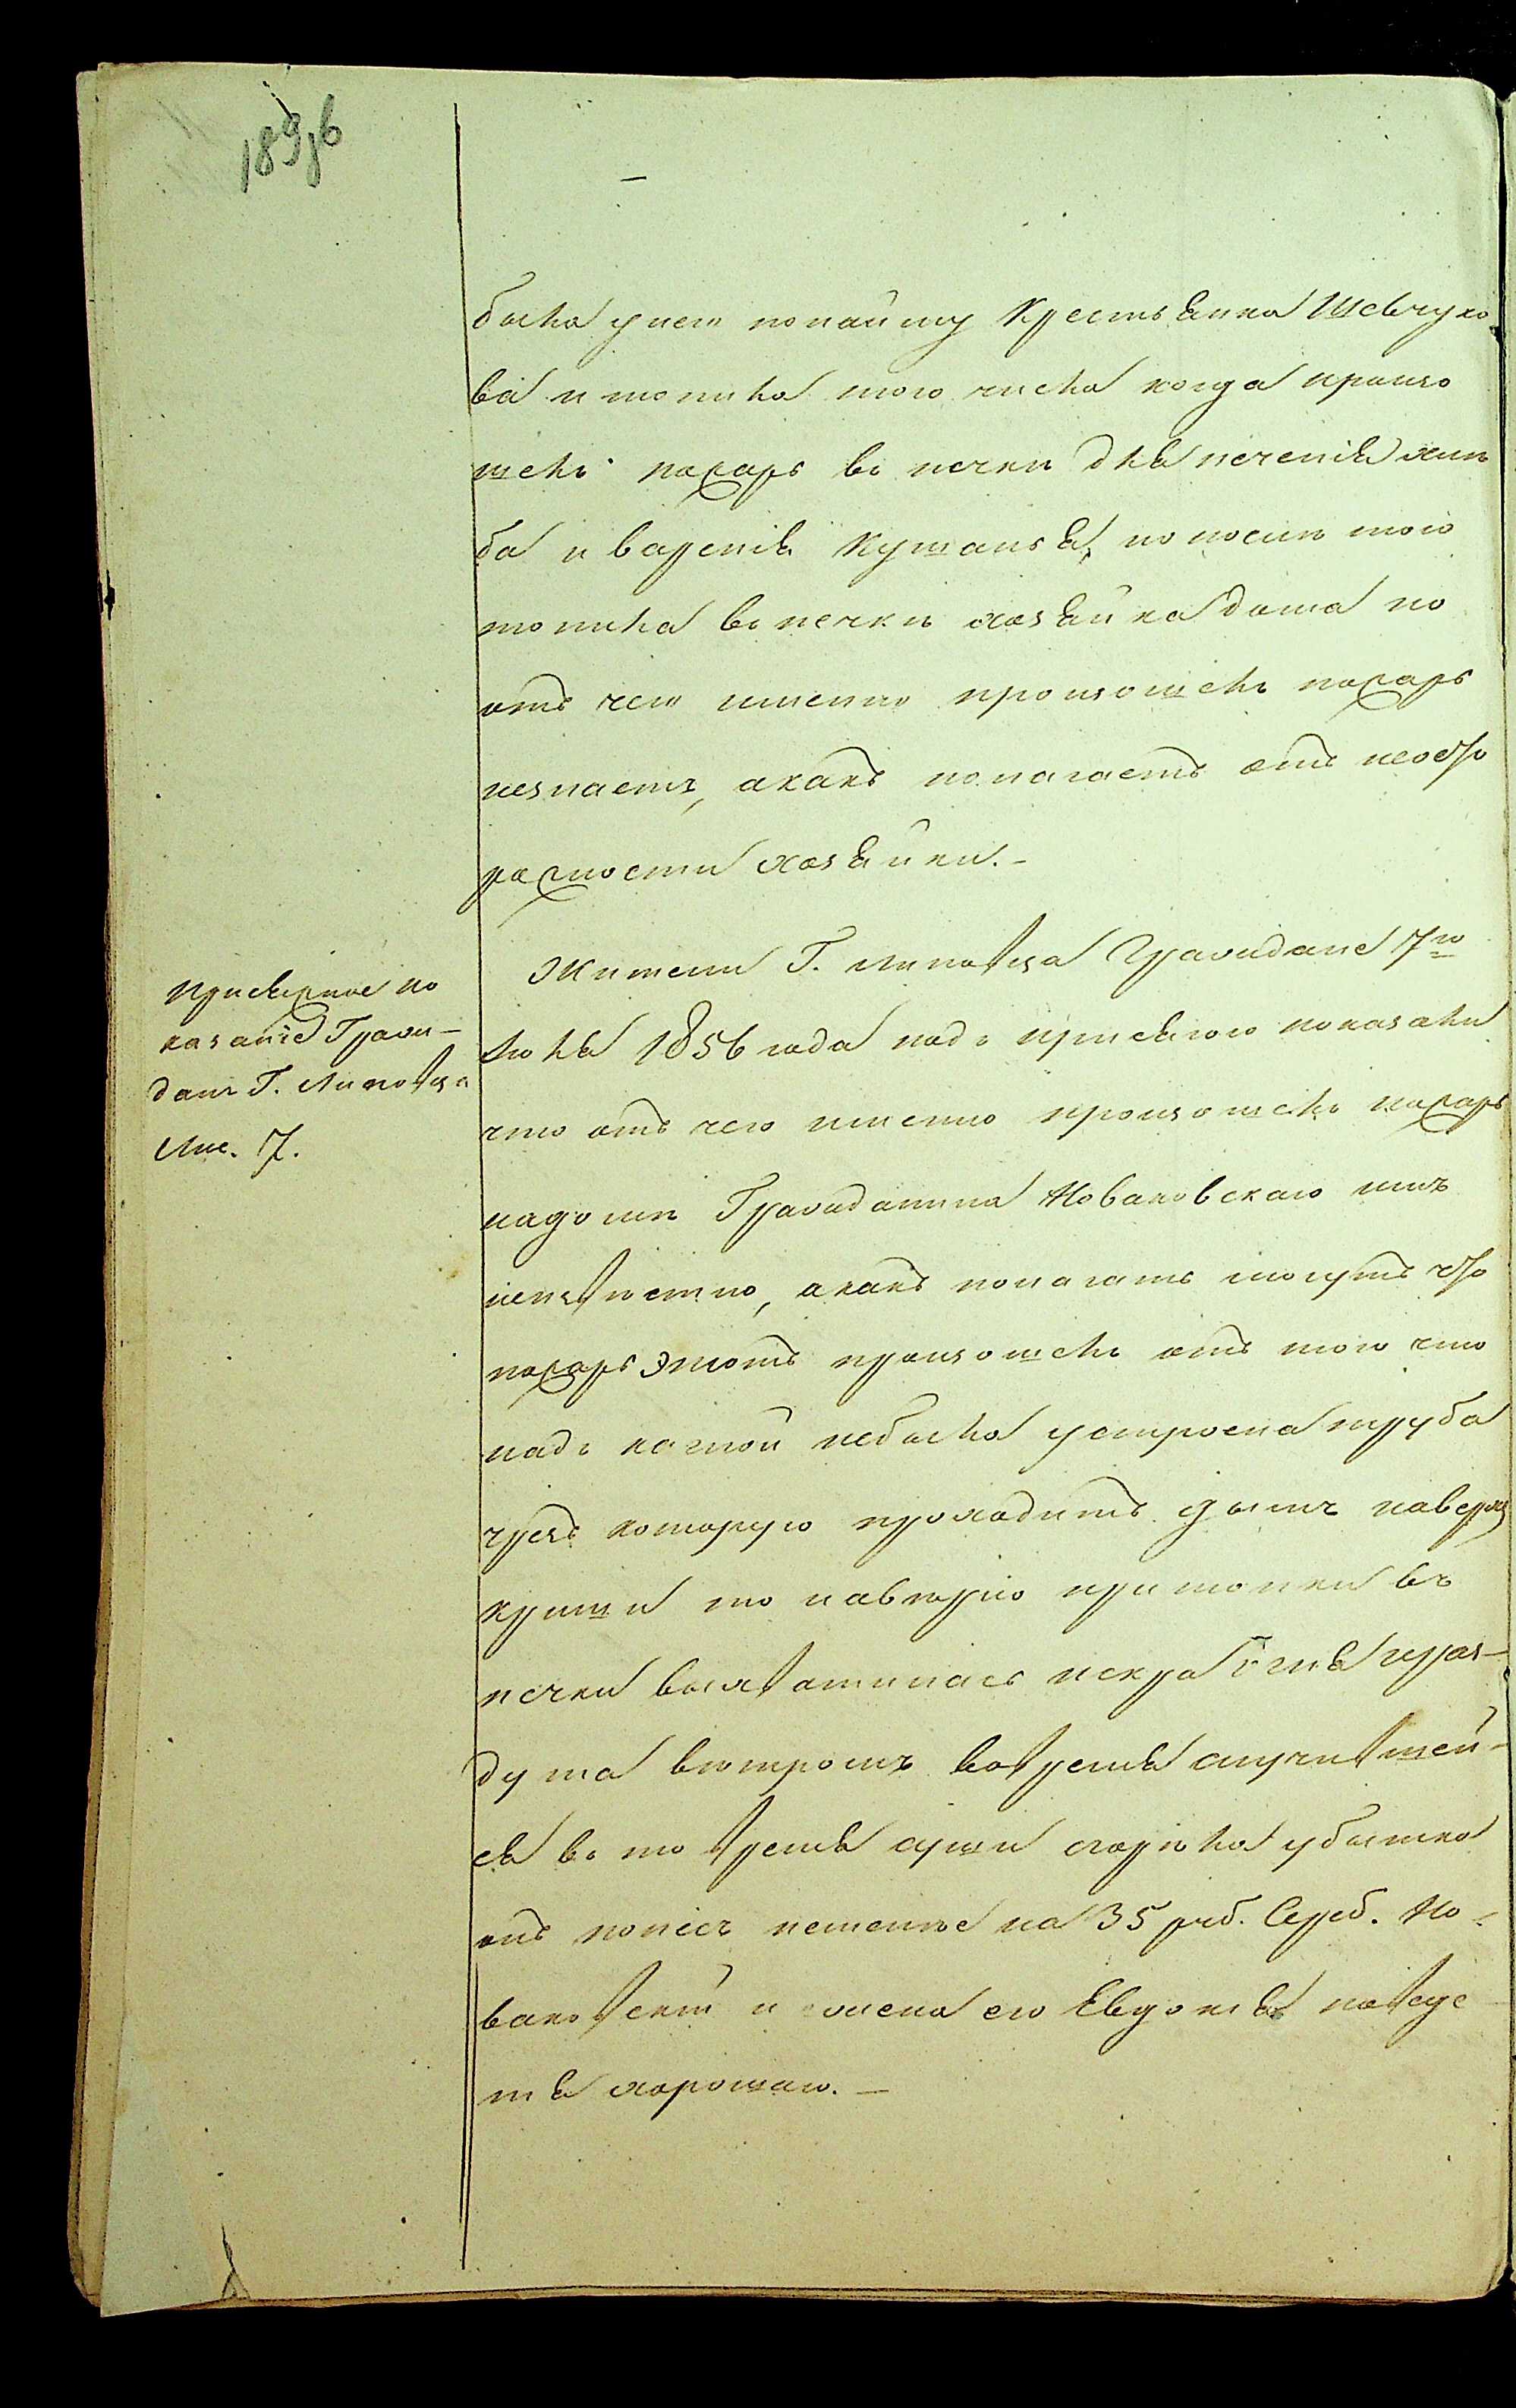 189зв
была у него по найму Крестьянка Шевчуко
ва и топила того числа когда произо
шелъ пожаръ въ печки для печенія хлѣ
ба и варенія кушанья, но после того
топила въ печкѣ хозяйка дома но
отъ чего именно произошелъ пожаръ
незнаетъ, а какъ полагаетъ отъ неосто
рожности хозяйки. –
Присяжное по
казаніе Гражи–
данъ Г. Липовца
Лис. 7.
Жители Г. Липовца Граждане 7го
Іюля 1856 года подъ присягою показали
что отъ чего именно произошелъ пожаръ
надоми Гражданина Новаковскаго имъ
неизвѣстно, а какъ полагать могутъ что
пожаръ этотъ произошелъ отъ того что
надъ качной небыла устроена труба
чрезъ которую проходитъ дымъ наверхъ
крыши то навѣрно при топки въ
печки выхватилась искра огня и раз–
дута вѣтромъ во время случившей–
ся въ то время суши сгорѣла убытка
онъ понесъ неменѣе на 35 руб. Сереб. Но–
ваковскій и жена его Евдокія поведе
нія хорошаго. –